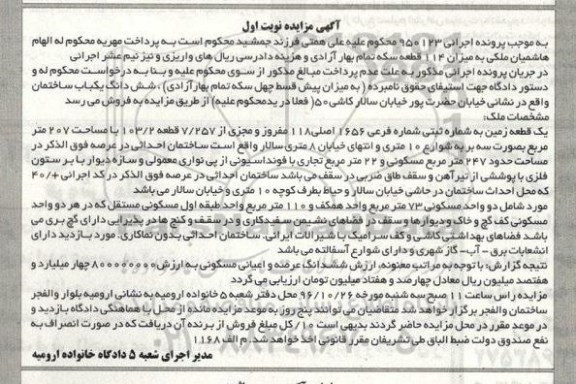 آگهی مزایده نوبت اول
به موجب پرونده اجرائی ۹۵۰۱۲۳ محکوم علیه علی همتی فرزند جمشید محکوم است به پرداخت مهریه محکوم له الهام
هاشمیان ملکی به میزان ۱۱۴ قطعه سکه تمام بهار آزادی و هزینه دادرسی ریال های واریزی و نیز نیم عشر اجرائی
در جریان پرونده اجرائی مذکور به علت عدم پرداخت مبالغ مذکور از سوی محکوم علیه و بنا به درخواست محکوم له و
دستور دادگاه جهت استیفای حقوق نامبرده ( به میزان پیش قسط چهل سکه تمام بهارآزادی) ، شش دانگ یکباب ساختمان
واقع در نشانی خیابان حضرت پور خیابان سالار کاشی ۵۰ ( فعلا در ید محکوم علیه) از طریق مزایده به فروش می رسد
مشخصات ملک:
یک قطعه زمین به شماره ثبتی شماره فرعی ۱۶۵۶ اصلی ۱۱۸ مفروز و مجزی از ۷/۲۵۷ قطعه ۱۰۳/۲ با مساحت ۲۰۷ متر
مربع بصورت سه بر به شوارع ۱۰ متری و انتهای خیابان ۸ متری سالار واقع است ساختمان احداثی در عرصه فوق الذکر در
مساحت حدود ۲۴۷ متر مربع مسکونی و ۲۲ متر مربع تجاری با فونداسیونی از پی نواری معمولی و سازه دیوار با بر ستون
فلزی با پوششی از تیرآهن و سقف طاق ضربی در سقف می باشد ساختمان احداثی در عرصه فوق الذکر در کد اجرائی ۰/۴۰+
که محل احداث ساختمان در حاشی خیابان سالار و حیاط بطرف کوچه ۱۰ متری و خیابان سالار می باشد
مورد شامل دو واحد مسکونی ۷۳ متر مربع واحد همکف و ۱۱۰ متر مربع واحد طبقه اول مسکونی مستقل که در هر دو واحد
مسکونی کف گچ و خاک و دیوارها و سقف در فضاهای نشیمن سفیدکاری و در سقف و کنج ها در پذیرایی دارای گچ بری می
باشد فضاهای بهداشتی کاشی و کف سرامیک با شیرآلات ایرانی. ساختمان احداثی بدون نماکاری. مورد بازدید دارای
انشعابات برق – آب– گاز شهری و دارای شوارع آسفالته می باشد
نتیجه گزارش: با توجه به مراتب معنونه، ارزش ششدانگ عرصه و اعیانی مسکونی به ارزش ۸۰۰۰۰۰۰۰۰ چهار میلیارد و
هفتصد میلیون ریال معادل چهارصد و هفتاد میلیون تومان ارزیابی می گردد
مزایده راس ساعت ۱۱ صبح سه شنبه مورخه ۹۶/۱۰/۲۶ محل دفتر شعبه ۵ خانواده ارومیه به نشانی ارومیه بلوار والفجر
ساختمان والفجر برگزار خواهد شد متقاضیان می توانند پنج روز به موعد مزایده مانده از محل با هماهنگی دادگاه بازدید و
در موعد مقرر در محل مزایده حاضر گردند بدیهی است ۱۰٪ کل مبلغ فروش از برنده آن دریافت که در صورت انصراف به
نفع صندوق دولت ضبط الباقی طی تشریفان مقرر قانونی اخذ خواهد شد. م الف ۱۱۶۸
مدیر اجرای شعبه ۵ دادگاه خانواده ارومیه